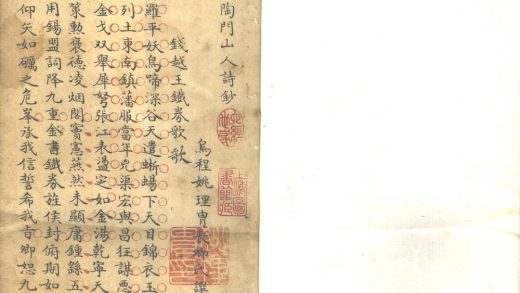 陶門山人詩鈔
烏程姚理冑長卿氏譔
錢越王鐵券歌歌
羅平妖鳥啼深谷天遣蜥蜴下天目錦衣玉
列土東南鎮藩服當年兇渠宏與昌狂謀悪
金戈双舉犀弩張江表盪定如金湯乾寧天
策勲褒德凌烟閣竇憲燕然未顯庸鍾繇五
用錫盟詞降九重金書鐵券旌侯封俯期如
仰矢如礪之危峯承我信誓希我言卿恕九